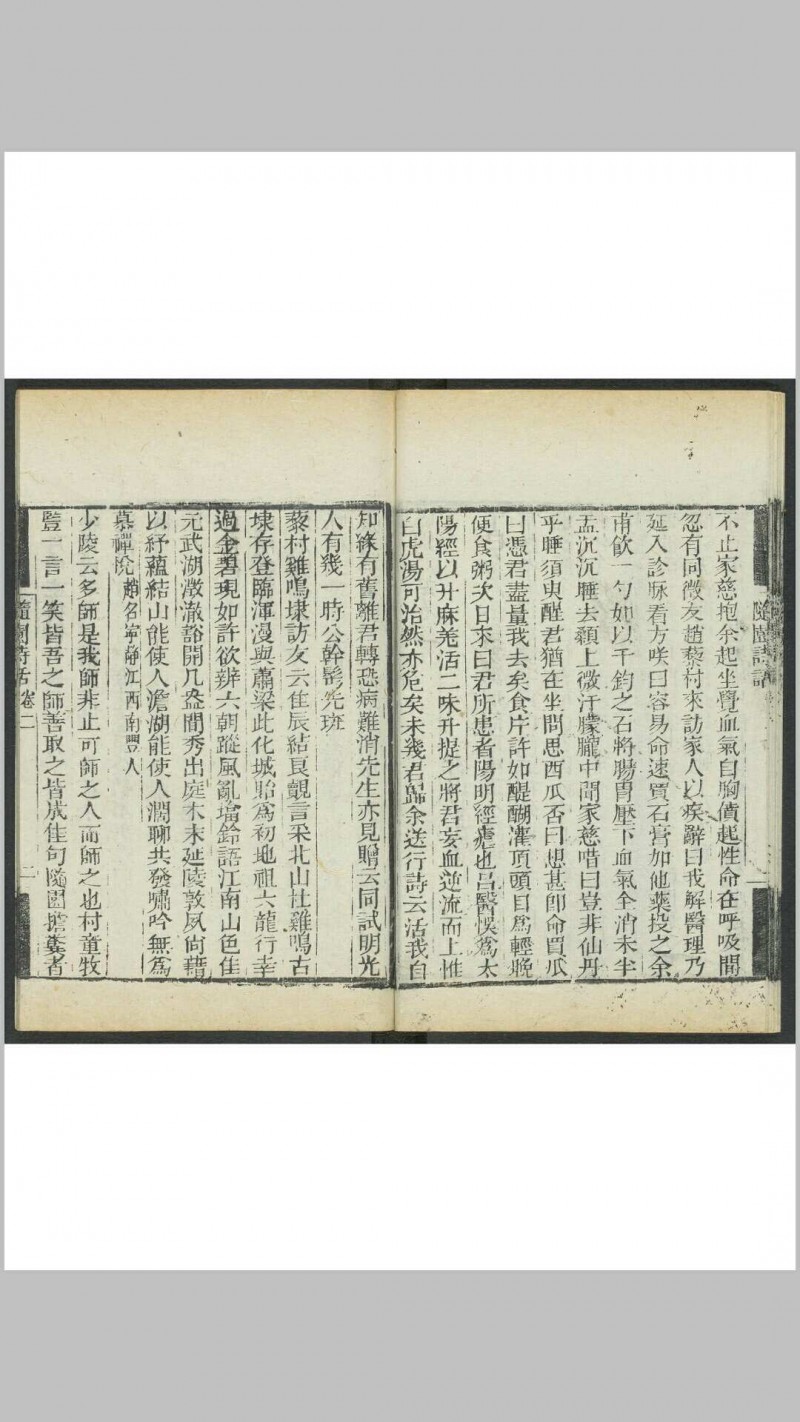 隨園詩話
不止家慈抱余起坐覺血氣自胸僨起性命在呼吸間
忽有同徵友趙藜村來訪家人以疾辭曰我解醫理乃
延入診脉看方咲曰容易命速買石膏加他藥投之余
甫飲一勺如以千鈞之石將腸胃壓下血氣全消未半
盂沉沉睡去顙上微汗朦朧中聞家慈唶曰豈非仙丹
乎睡須臾醒君猶在坐問思西瓜否曰想甚卽命買瓜
曰憑君盡量我去矣食片許如醍醐灌頂頭目爲輕晚
便食粥次日來曰君所患者陽明經瘧也呂醫悞爲太
陽經以升麻羗活二味升提之將君妄血逆流而上惟
白虎湯可治然亦危矣未幾君歸余送行詩云活我自
知緣有舊離君轉恐病難消先生亦見贈云同試明光
人有幾一時公幹鬂先班
藜村雞鳴埭訪友云佳辰結良覿言采北山杜雞鳴古
埭存登臨渾漫與蕭梁此化城貽爲初地祖六龍行幸
過金碧現如許欲辨六朝蹤風亂壋鈴語江南山色佳
元武湖澂澈豁開几盎間秀出庭木末延陵敦夙尚藉
以紓蘊結山能使人澹湖能使人濶聊共發嘯吟無爲
慕禪悅 趙名寧靜江西南豐人
少陵云多師是我師非止可師之人而師之也村童牧
豎一言一笑皆吾之師善取之皆成佳句隨園擔糞者
隨園詩話 卷二 二